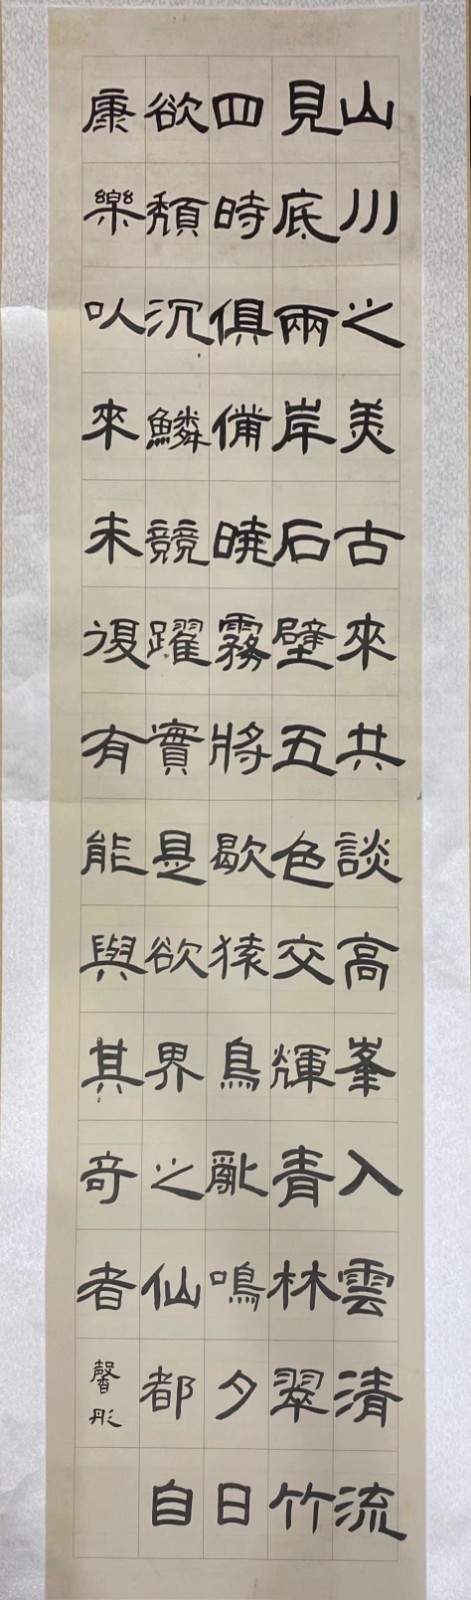 山川之美古來共談高峯入雲清流
見底兩岸石壁五色交輝青林翠竹
四時俱備曉霧將歇猿鳥亂鳴夕日
欲頹沉鱗競躍實是欲界之仙都自
康樂以來未復有能與其奇者
馨彤